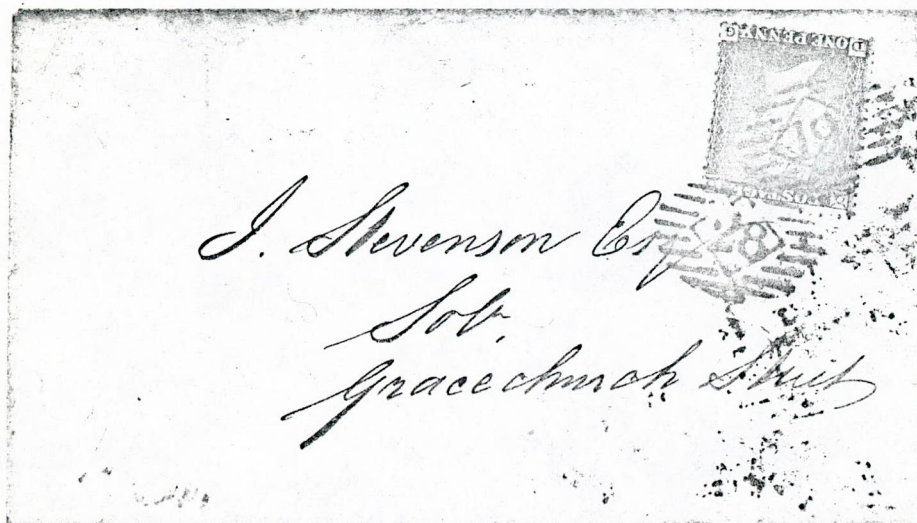 D ONE PENNY G
POSTAGE
28
J. Stevenson Esq
Solr,
Gracechurch Street